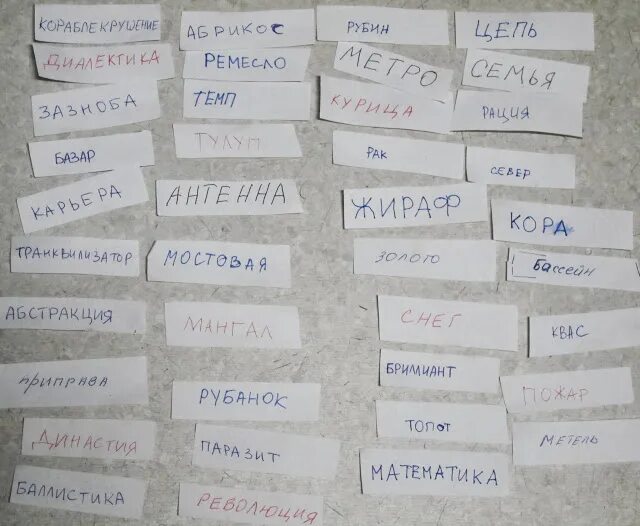 КОРАБЛЕКРУШЕНИЕ
ДИАЛЕКТИКА
ЗАЗНОБА
БАЗАР
КАРЬЕРА
ТРАНКВИЛИЗАТОР
АБСТРАКЦИЯ
ПРИПРАВА
ДИНАСТИЯ
БАЛЛИСТИКА
АБРИКОС
РЕМЕСЛО
ТЕМП
ТУЛУП
АНТЕННА
МОСТОВАЯ
МАНГАЛ
РУБАНОК
ПАРАЗИТ
РЕВОЛЮЦИЯ
РУБИН
МЕТРО
КУРИЦА
РАК
ЖИРАФ
ЗОЛОТО
СНЕГ
БРИЛЛИАНТ
ТОПОТ
МАТЕМАТИКА
ЦЕПЬ
СЕМЬЯ
РАЦИЯ
СЕВЕР
КОРА
Бассейн
КВАС
ПОЖАР
МЕТЕЛЬ